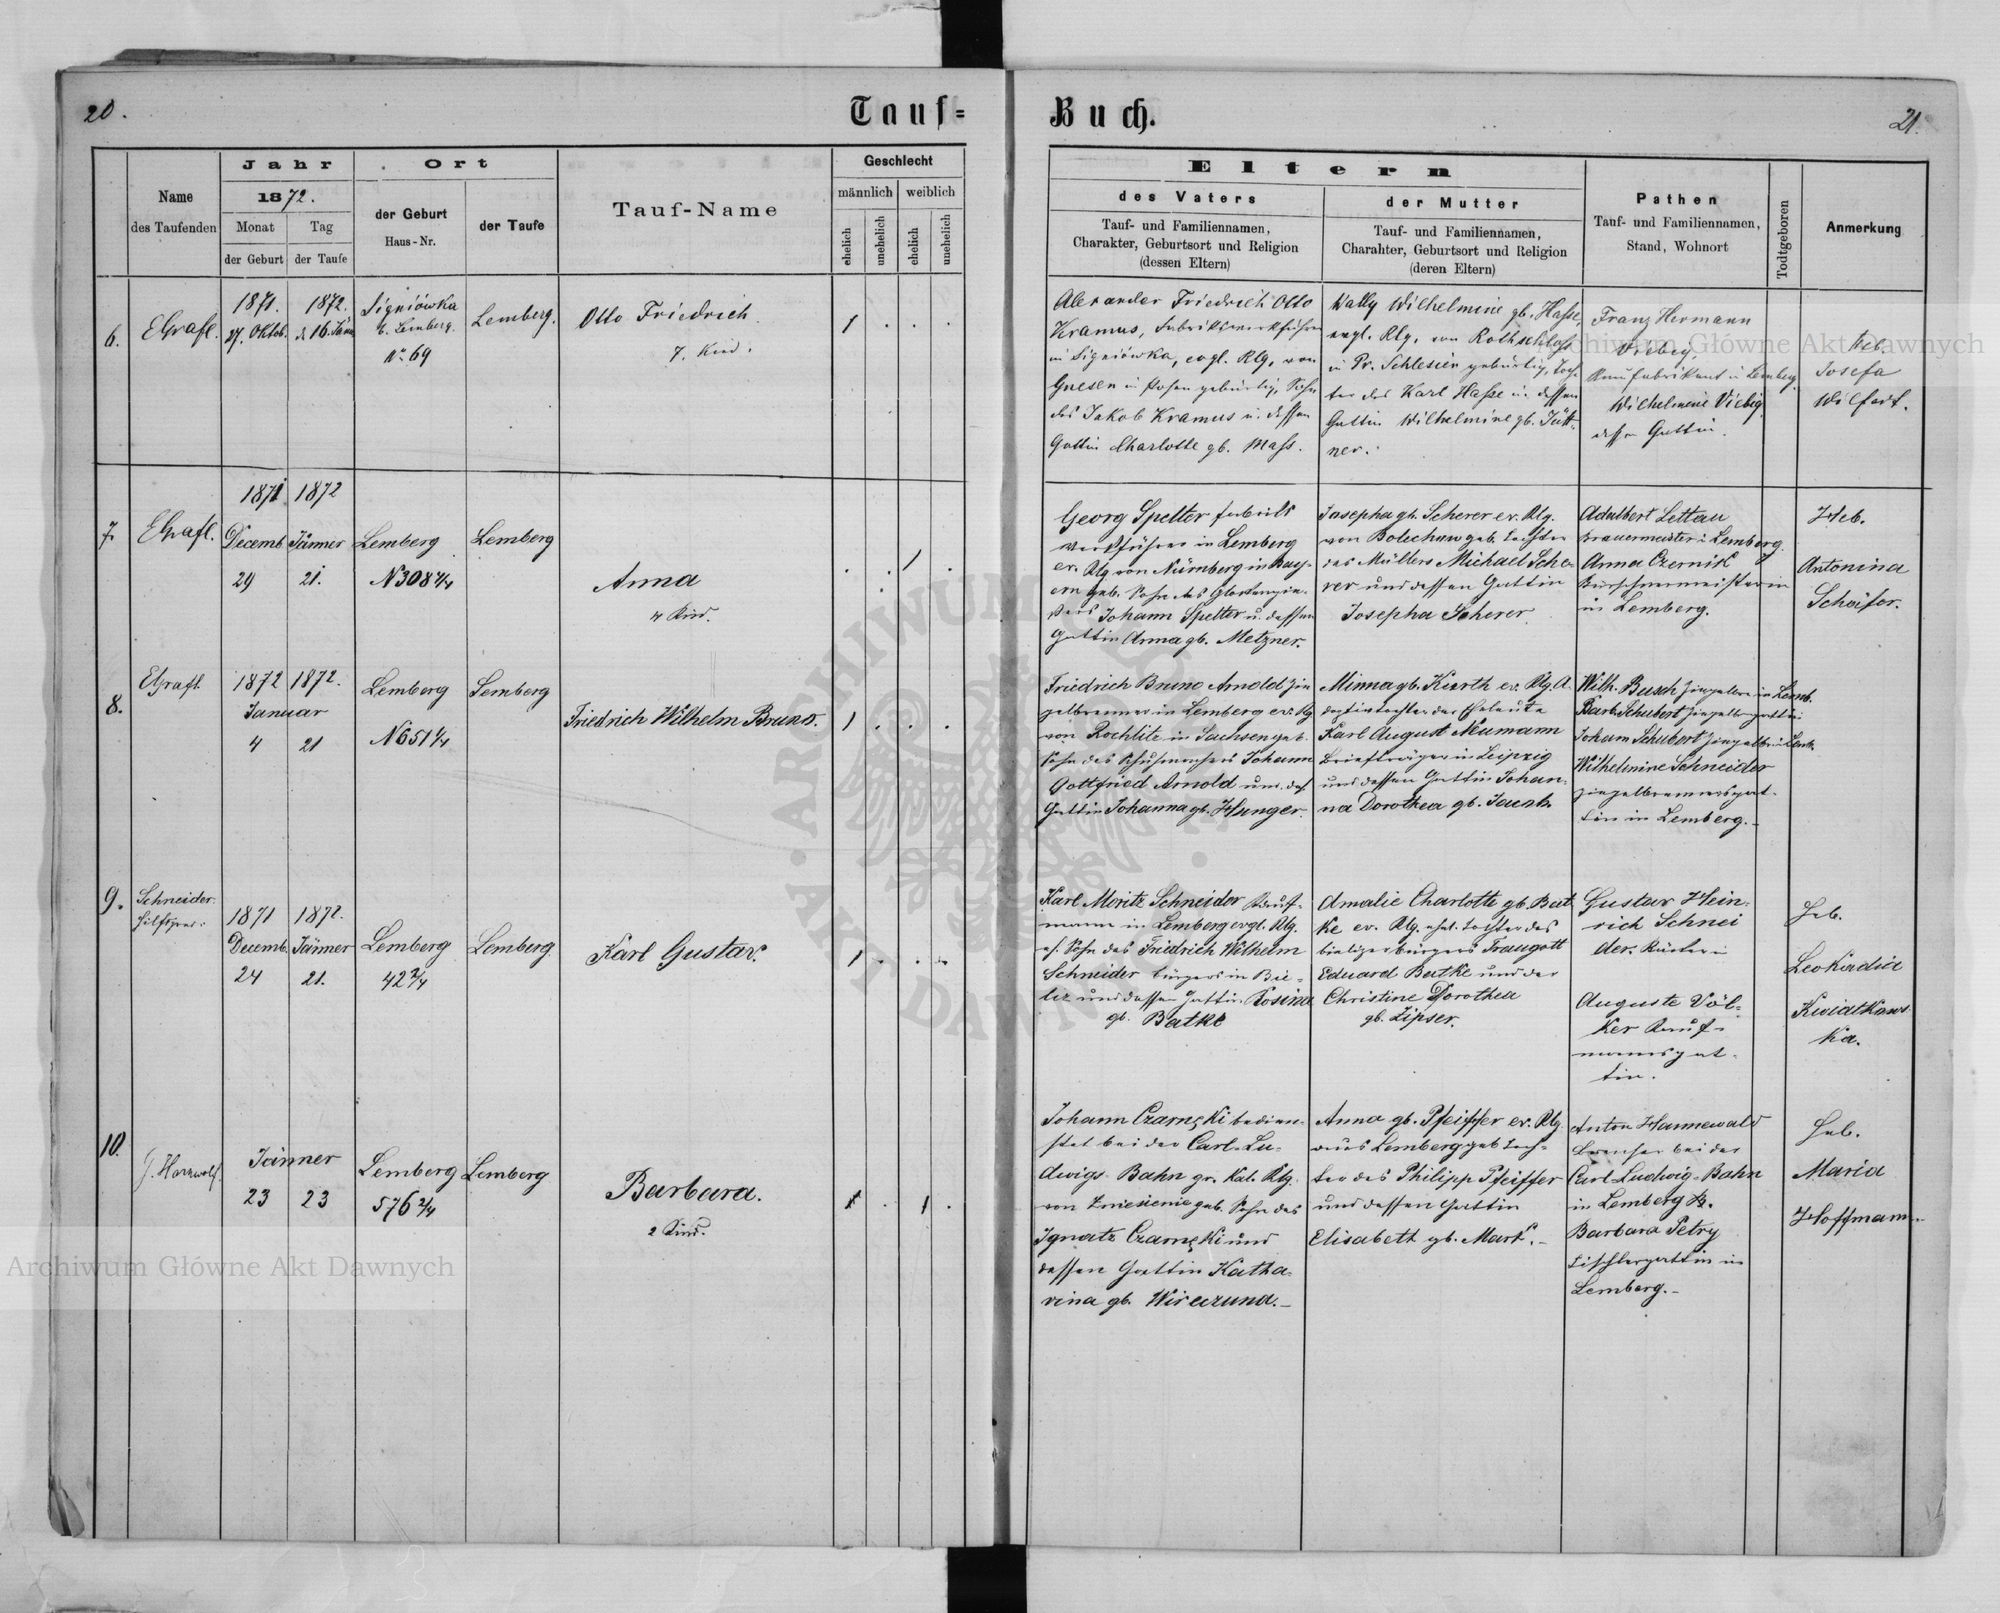 20.
Tauf-
Buch.
21.
Name
des Taufenden
Jahr
1872.
Monat
der Geburt
Tag
der Taufe
Ort
der Geburt
Haus-Nr.
der Taufe
Tauf-Name
Geschlecht
männlich
weiblich
ehelich
unehelich
ehelich
unehelich
Eltern
des Vaters
Tauf- und Familiennamen,
Charakter, Geburtsort und Religion
(dessen Eltern)
der Mutter
Tauf- und Familiennamen,
Charahter, Geburtsort und Religion
(deren Eltern)
Pathen
Tauf- und Familiennamen,
Stand, Wohnort
Todtgeboren
Anmerkung
6.
EGrafl.
1871.
27. Oktob.
1872.
d. 16. Jänn
Signiówka
b. Lemberg.
No. 69
Lemberg.
Otto Friedrich
7. Kind.
1
Alexander Friedrich Otto
Kramus, Fabrikswerkführer
in Signiówka, evgl. Rlg, von
Gnesen in Posen gebürtig, Sohn
des Jakob Kramus u. dessen
Gattin Charlotte gb. Mass.
Wally Wilhelmine gb. Hasse,
evgl. Rlg, von Rothschloss
in Pr. Schlesien gebürtig, Toch-
ter des Karl Hasse u. dessen
Gattin Wilhelmine gb. Jütt-
ner.
Franz Hermann
Viebeg,
in Lemberg,
Wilhelmine Viebig
dessen Gattin.
Heb.
Josefa
Wilfart.
7.
EGrafl.
1871
Decemb.
29
1872
Jänner
21.
Lemberg
N 308 4/4
Lemberg
Anna
4 Kind.
1
Georg Spelter Fabriks
werkführer in Lemberg
ev. Rlg von Nürnberg in Bay-
ern geb. Sohn des Glockengie-
ßers Johann Spelter u. dessen
Gattin Anna gb. Metzner.
Josepha gb. Scherer ev. Rlg.
von Bolechow geb. Tochter
des Müllers Michael Sche-
rer und dessen Gattin
Josepha Scherer.
Adalbert Lettau
Brauermeister in Lemberg.
Anna Czernik
in Lemberg.
Heb.
Antonina
Schäfer.
8.
EGrafl.
1872
Januar
4
1872.
21
Lemberg
N 651 4/4
Lemberg
Friedrich Wilhelm Bruno.
1
Friedrich Bruno Arnold Zie
gelbrenner in Lemberg ev. Rlg
von Rochlitz in Sachsen geb.
Sohn des Schuhmachers Johann
Gottfried Arnold und dess.
Gattin Johanna gb. Hunger.
Minna gb. Kierth ev. Rlg. A
doptivtochter der Eheleute
Karl August Neumann
Briefträger in Leipzig
und dessen Gattin Johan-
na Dorothea gb. Jacob.
Wilh. Busch Ziegelbre. in Lemb.
Barb. Schubert
Johann Schubert
Wilhelmine Schneider
Ziegelbrennersgat-
tin in Lemberg.
9.
Schneider.
Hilfspred.
1871
Decemb.
24
1872.
Jänner
21.
Lemberg
42 2/4
Lemberg.
Karl Gustav.
1
Karl Moritz Schneider Kauf-
mann in Lemberg evgl. Rlg.
eh. Sohn des Friedrich Wilhelm
Schneider bürgers in Bie-
litz und dessen Gattin Rosina
gb. Batke
Amalie Charlotte gb. Bat
ke ev. Rlg. ehel. Tochter des
bielitzer bürgers Traugott
Eduard Batke und der
Christine Dorothea
gb. Zipser.
Gustav Hein-
rich Schnei
der.
Auguste Völ-
ker Kauf-
mannsgat-
tin.
Heb.
Leokadia
Kwiatkows
ka.
10.
J. Harrwolf.
Jänner
23
23
Lemberg
576 2/4
Lemberg
Barbara.
2 Kind.
1
Johann Czarnęki bedien-
stet bei der Carl-Lu-
dwigs-Bahn gr. Kat. Rlg.
von Zniesienie geb. Sohn des
Ignatz Czarnęki und
dessen Gattin Katha-
rina gb. Wireczuna.
Anna gb. Pfeiffer ev. Rlg.
aus Lemberg geb. Toch-
ter des Philipp Pfeiffer
und dessen Gattin
Elisabeth gb. Mark.
Anton Hannewald
Bremser bei der
Carl Ludwig-Bahn
in Lemberg
Barbara Petry
Tischlergattin in
Lemberg.
Heb.
Maria
Hoffmann.
Archiwum Główne Akt Dawnych
Archiwum Główne Akt Dawnych